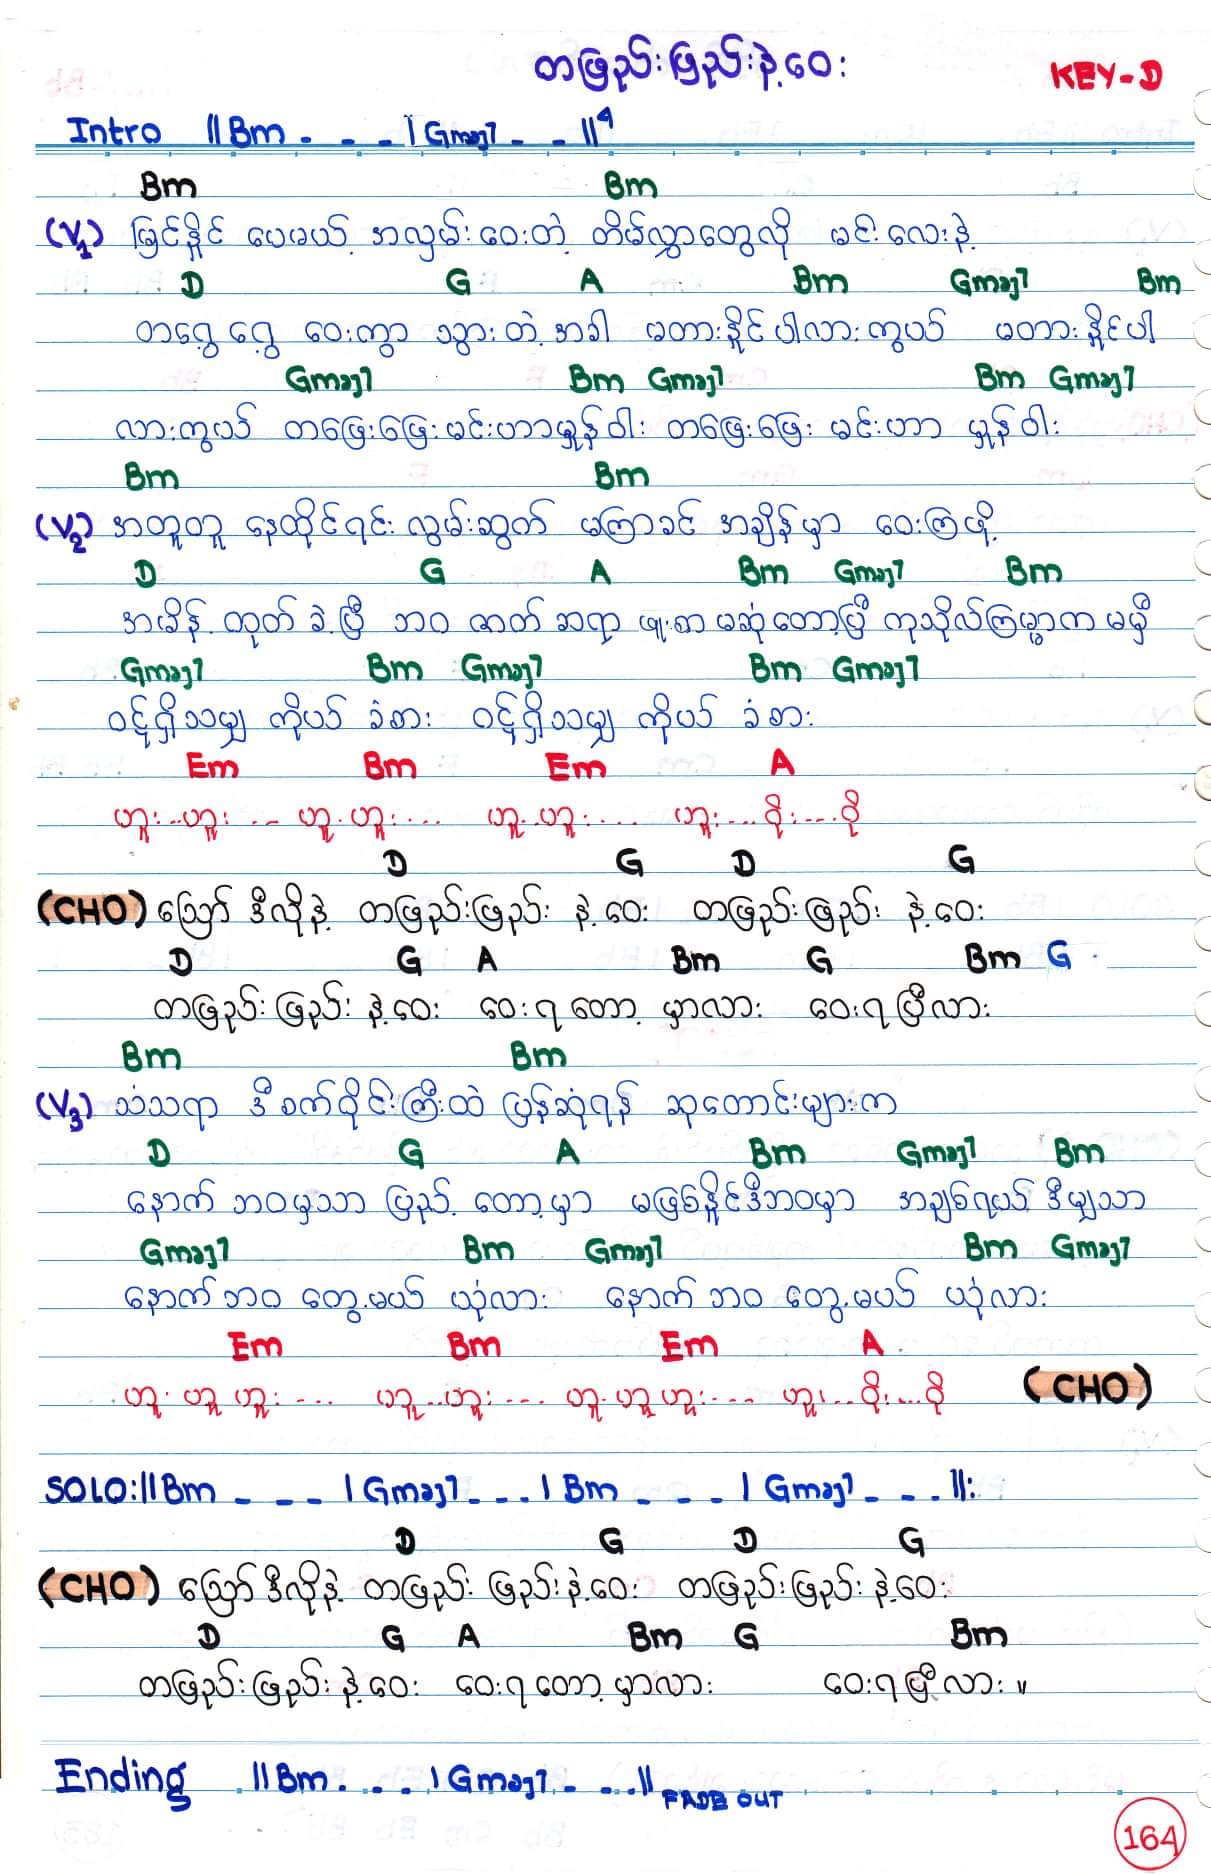 တဖြည်းဖြည်းနဲ့ဝေး
KEY-D
Intro ||Bm - - - | Gmaj7 - - ||4
Bm Bm
(V1) မြင်နိုင် ပေမယ့် အလှမ်းဝေးတဲ့ တိမ်လွှာတွေလို မင်းလေးနဲ့
D G A Bm Gmaj7 Bm
တရွေ့ရွေ့ ဝေးကွာ သွားတဲ့အခါ မတားနိုင်ပါလားကွယ် မတားနိုင်ပါ
Gmaj7 Bm Gmaj7 Bm Gmaj7
လားကွယ် တဖြေးဖြေးမင်းဟာမှုန်ဝါး တဖြေးဖြေး မင်းဟာ မှုန်ဝါး
Bm Bm
(V2) အတူတူ နေထိုင်ရင်း လွမ်းဆွတ် မကြာခင် အချိန်မှာ ဝေးကြဖို့
D G A Bm Gmaj7 Bm
အမိန့် ထုတ်ခဲ့ပြီ ဘဝ ဇာတ်ဆရာ ဖူးစာမဆုံတော့ပြီ ကုသိုလ်ကြမ္မာက မမှီ
Gmaj7 Bm Gmaj7 Bm Gmaj7
ဝဋ်ရှိသမျှ ကိုယ် ခံစား ဝဋ်ရှိသမျှ ကိုယ် ခံစား
Em Bm Em A
ဟူး..ဟူး... ဟူ.ဟူး.... ဟူ..ဟူး.... ဟူး...ဝိုး...ဝို
D G D G
(CHO) ဪ ဒီလိုနဲ့ တဖြည်းဖြည်း နဲ့ဝေး တဖြည်းဖြည်း နဲ့ဝေး
D G A Bm G Bm G
တဖြည်းဖြည်း နဲ့ဝေး ဝေးရတော့ မှာလား ဝေးရပြီလား
Bm Bm
(V3) သံသရာ ဒီစက်ဝိုင်းကြီးထဲ ပြန်ဆုံရန် ဆုတောင်းများက
D G A Bm Gmaj7 Bm
နောက် ဘဝမှသာ ပြည့် တော့မှာ မဖြစ်နိုင်ဒီဘဝမှာ အချစ်ရယ် ဒီမျှသာ
Gmaj7 Bm Gmaj7 Bm Gmaj7
နောက်ဘဝ တွေ့မယ် ယုံလား နောက်ဘဝ တွေ့မယ် ယုံလား
Em Bm Em A
ဟူး ဟူ ဟူး.... ဟူ..ဟူး.... ဟူ.ဟူဟူး.... ဟူး...ဝိုး....ဝို (CHO)
SOLO:||Bm - - - | Gmaj7 - - - | Bm - - - | Gmaj7 - - - ||:
D G D G
(CHO) ဪ ဒီလိုနဲ့ တဖြည်း ဖြည်းနဲ့ဝေး တဖြည်းဖြည်း နဲ့ဝေး
D G A Bm G Bm
တဖြည်းဖြည်း နဲ့ဝေး ဝေးရတော့မှာလား ဝေးရပြီလား ။
Ending ||Bm - - - | Gmaj7 - - - || FADE OUT
164